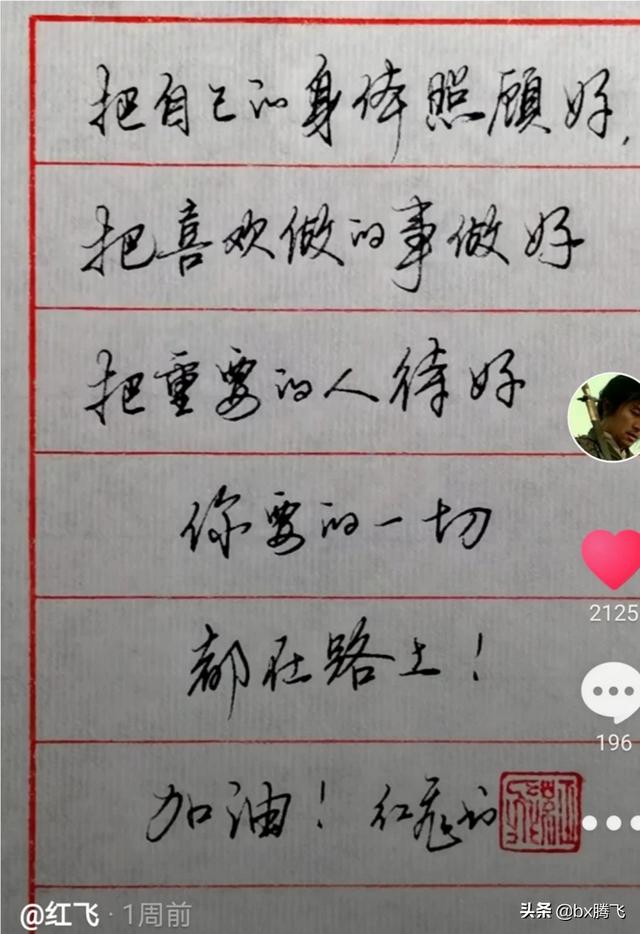 把自己的身体照顾好，
把喜欢做的事做好
把重要的人待好
你要的一切
都在路上！
加油！ 红飞书
2125
196
@红飞 · 1周前
头条 @bx腾飞